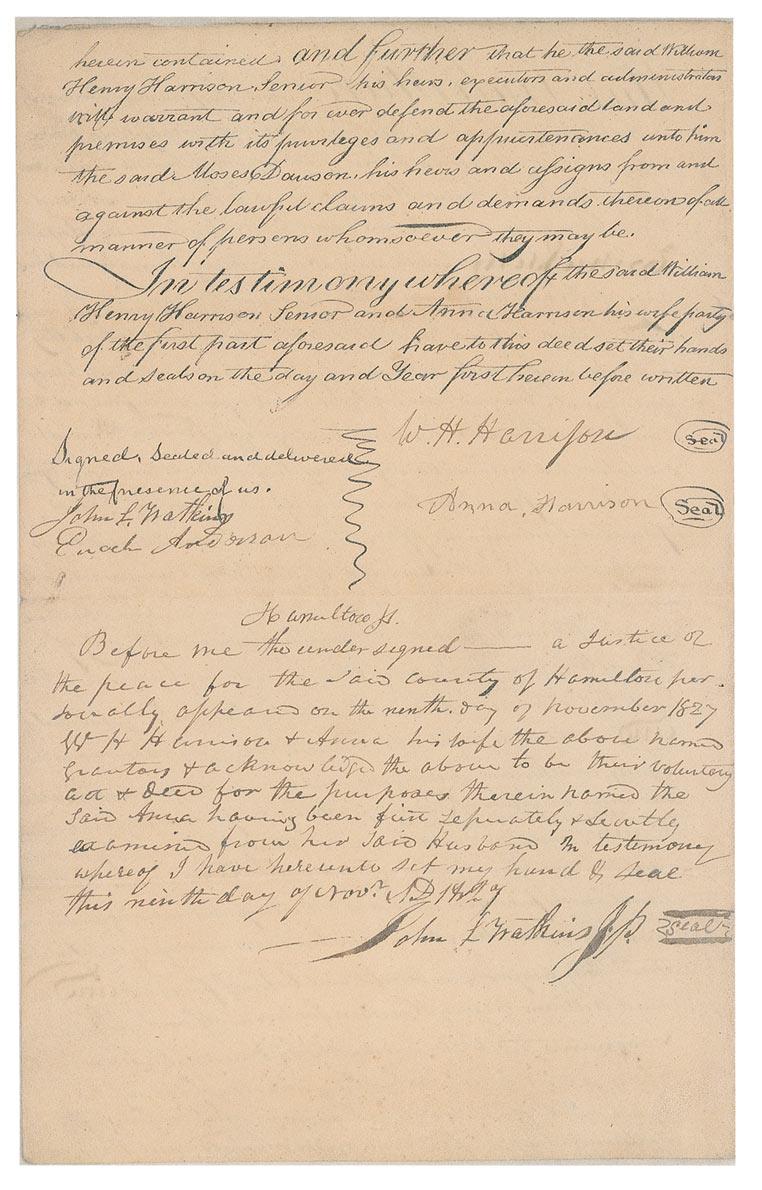 herein contained. and further that he the said William
Henry Harrison Senior his heirs, executors and administrators
will warrant and for ever defend the aforesaid land and
premises with its privileges and appurtenances unto him
the said Moses Dawson, his heirs and assigns from and
against the lawful claims and demands thereon of all
manner of persons whomsoever they may be.
In testimony whereof the said William
Henry Harrison Senior and Anna Harrison his wife party
of the first part aforesaid have to this deed set their hands
and seals on the day and Year first herein before written
W. H. Harrison Seal
Signed, Sealed and delivered
in the presence of us.
Anna, Harrison Seal
John L. Watkins
Enoch Anderson
Hamilton
Before me the undersigned —— a Justice of
the peace for the said county of Hamilton per-
sonally appeared on the ninth day of november 1827
Wm H Harrison & Anna his wife the above named
grantors & acknowledged the above to be their voluntary
act & deed for the purposes therein named the
said Anna having been first seperately & secretly
examined from her said Husband In testimony
whereof I have hereunto set my hand & seal
this ninth day of Novr. AD 1827
John L Watkins J.P. seal